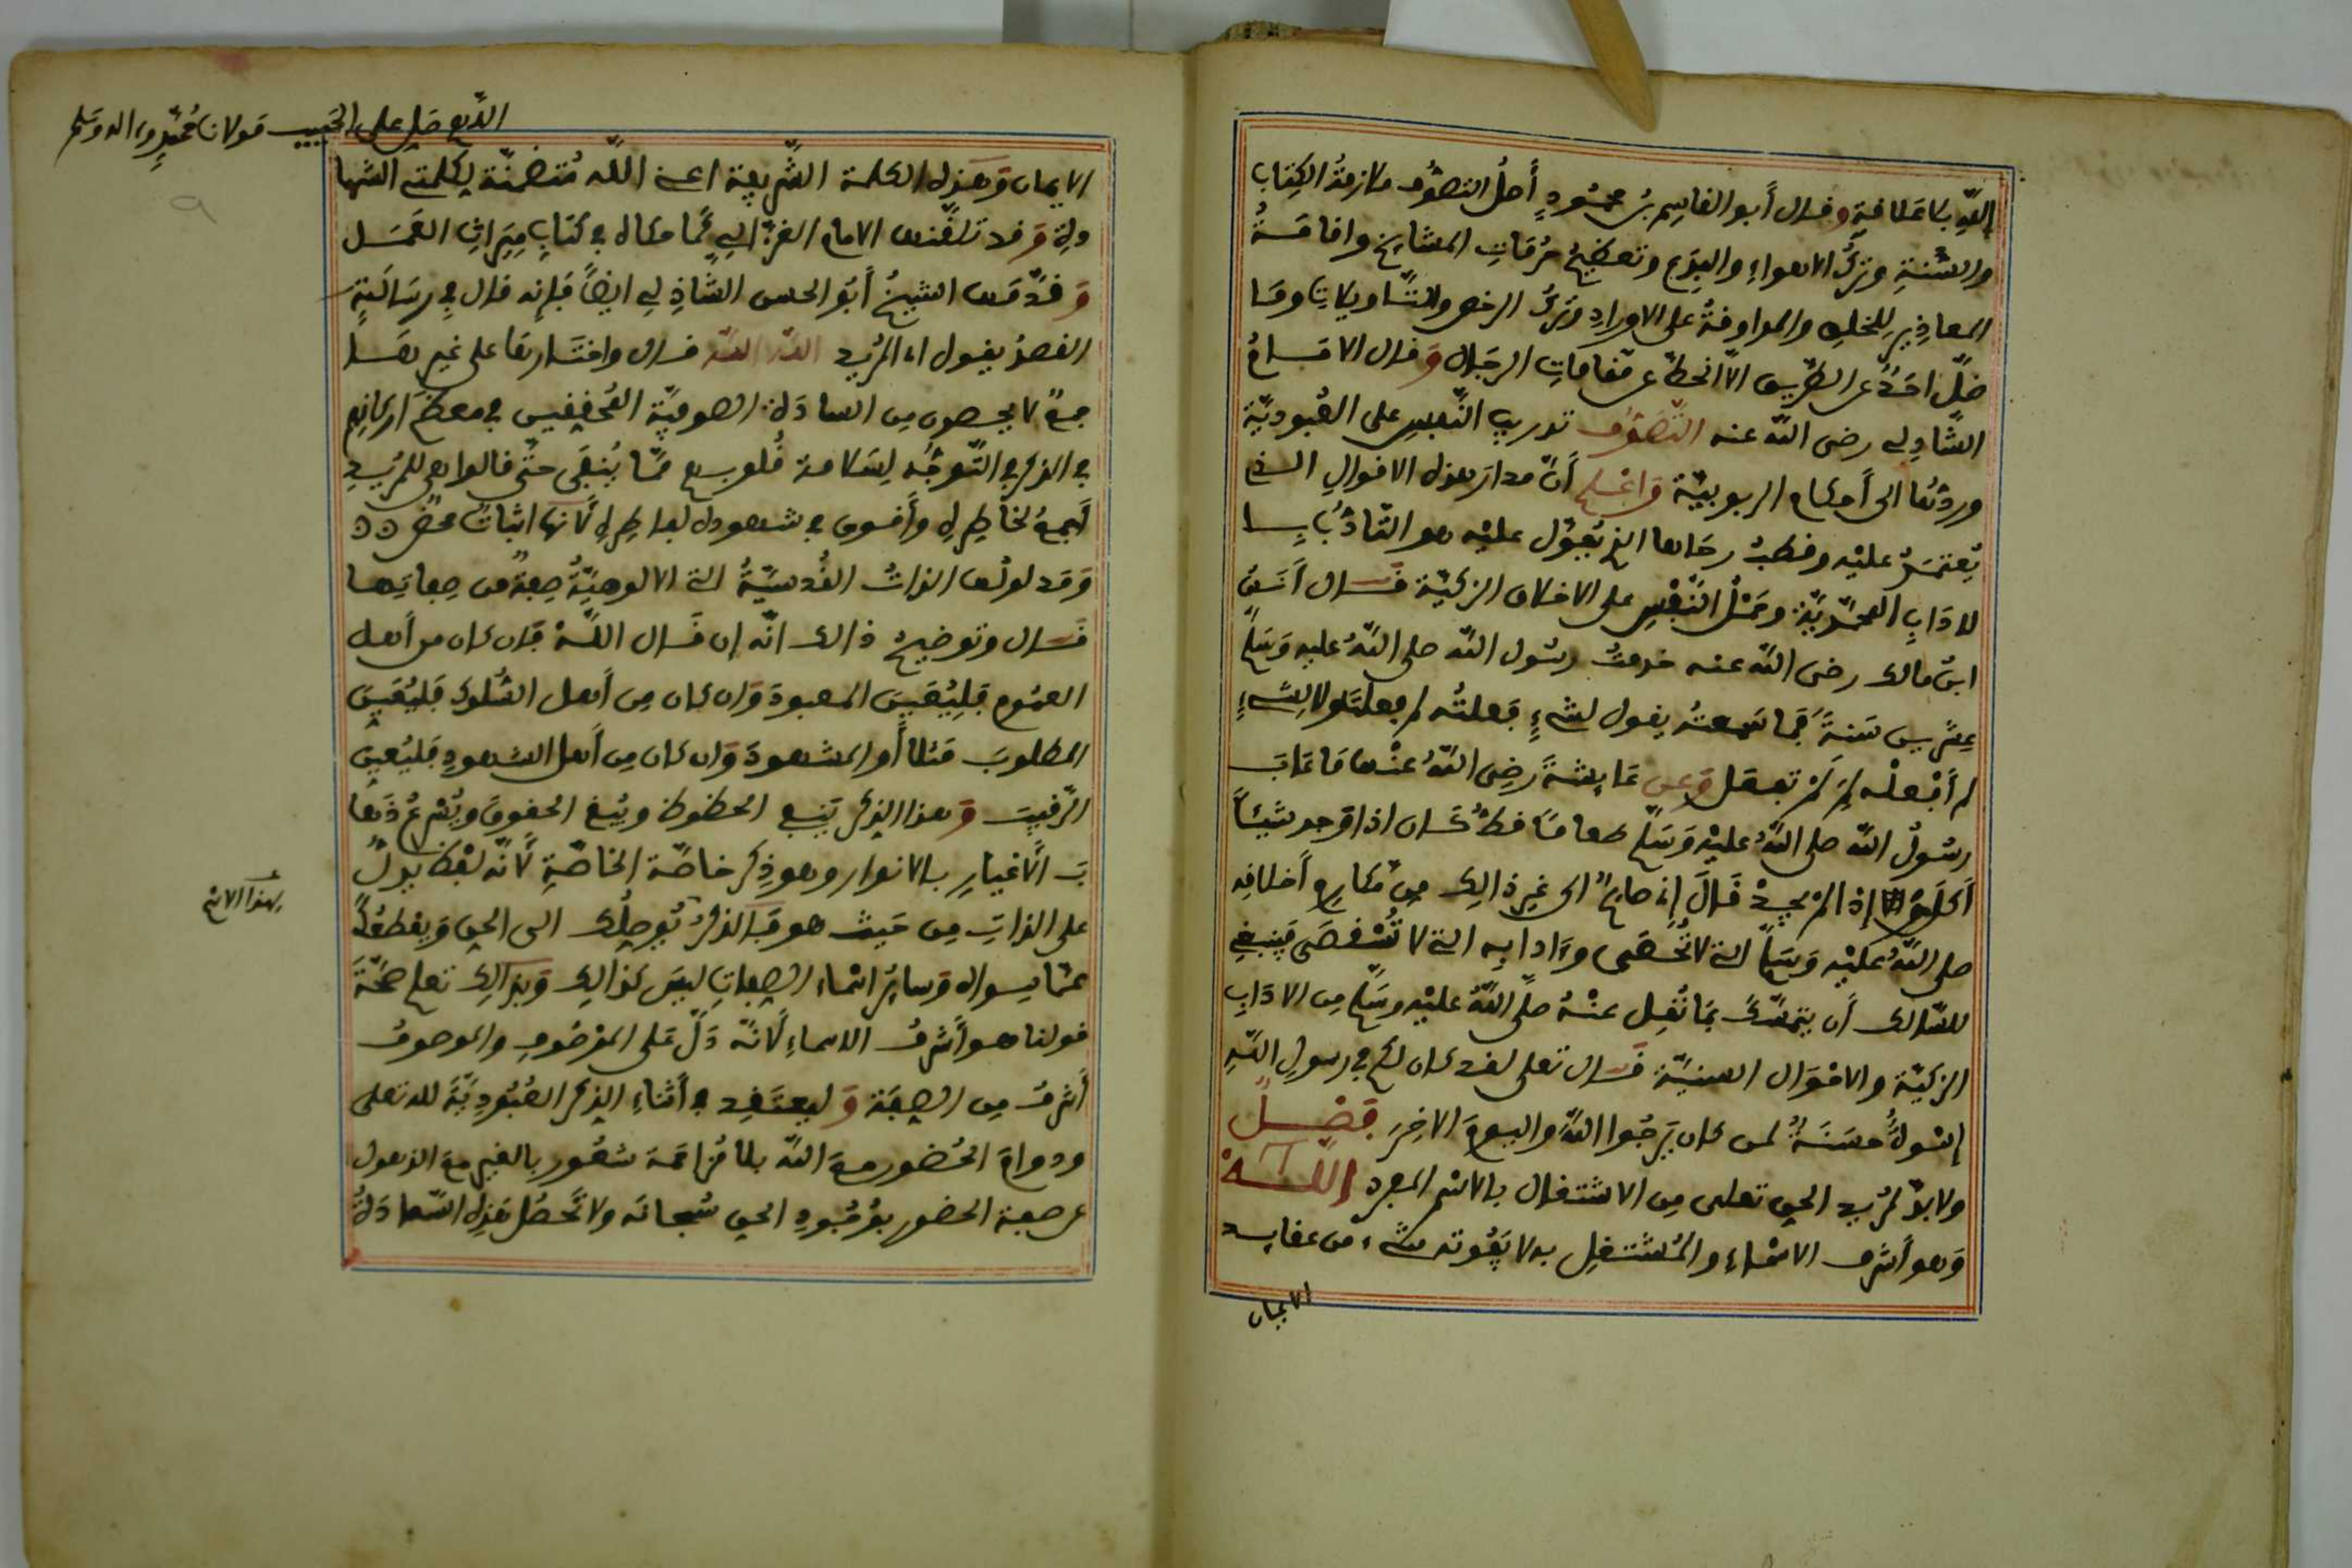 الله بلا علاقة وقال أبو القاسم بن محمود أصل التصوف ملازمة الكتاب
والسنة وترك الاهواء والبدع وتعظيم حرمات المشايخ واقامة
المعاذير للخلق والمداومة على الاوراد وترك الرخص والتاويلات وما
ضل احد عن الطريق الا انحط عن مقامات الرجال وقال الامام
الشاذلي رضى الله عنه التصوف تدريب النفس على العبودية
وردها الى أحكام الربوبية واعلم أن مدار هذه الاقوال الذى
يعتمد عليه وقطب رحاها الذى يعول عليه هو التادب با
لاداب المحمدية وحمل النفس على الاخلاق الزكية قال أنس
ابن مالك رضى الله عنه خدمت رسول الله صلى الله عليه وسلم
عشرين سنة فما سمعته يقول لشىء فعلته لم فعلته ولا لشىء
لم أفعله لم لم تفعل وعن عايشة رضى الله عنها ما عاب
رسول الله صلى الله عليه وسلم طعاما قط كان اذا وجد شيئا
أكله إذا لم يجد قال إنى صايم الى غير ذالك من مكارم أخلافه
صلى الله عليه وسلم التى لا تحصى وءادابه التى لا تستقصى فينبغى
للسالك أن يتمسك بما نقل عنه صلى الله عليه وسلم من الاداب
الزكية والاحوال السنية قال تعلى لقد كان لكم في رسول الله
إسوة حسنة لمن كان يرجوا الله واليوم الاخر فصل
ولا بد لمريد الحق تعلى من الاشتغال بالاسم المفرد الله
وهو أشرف الاسماء والمشتغل به لا يفوته شىء من عقايد
الايمان
اللهم صل على الحبيب مولانا محمد وءاله وسلم
الايمان وهذه الكلمة الشريفة اعنى الله متضمنة لكلمتى الشها
دة وقد تلقنها الامام الغزالي كما حكاه في كتاب ميزان العمل
وقدمها الشيخ أبو الحسن الشاذلي ايضا فإنه قال في رسالته
القصد يقول اى المريد الله الله قال واختارها على غير هما
جمع لا يحصون من السادة الصوفية المحققين في معظم اركانهم
في الذكر في التوجه لسلامة قلوبهم مما ينفى حتى قالوا هى للمريد
أجمع لخاطره وأقوى في شهوده لفاطره لانها اثبات محض
ومدلولها الذات القدسية التى الالوهية صفة من صفاتها
قال وتوضيح ذالك انه إن قال الله فان كان من أهل
العموم فليعين المعبود وان كان من أهل السلوك فليعين
المطلوب مثلا أو المشهود وان كان من أهل الشهود فليعين
الرقيب وهذا الذكر ينفى الحظوظ ويبقى الحقوق
الأغيار بالانوار وهو ذكر خاصة الخاصة لانه لفظ يدل
على الذات من حيث هو فالذكر يوصلك الى الحق ويقطعك
بهذا الاسم
عما سواه وسائر اسماء الصفات ليس كذالك وبذالك تعلم صحة
قولنا هو أشرف الاسماء لانه دل على الموصوف والموصوف
أشرف من الصفة وليعتقد في أثناء الذكر العبودية لله تعلى
ودوام الحضور مع الله بلا مزاحمة شعور بالغير مع الذهول
عن صفة الحضور بوجود الحق سبحانه ولا تحصل هذه السعادة